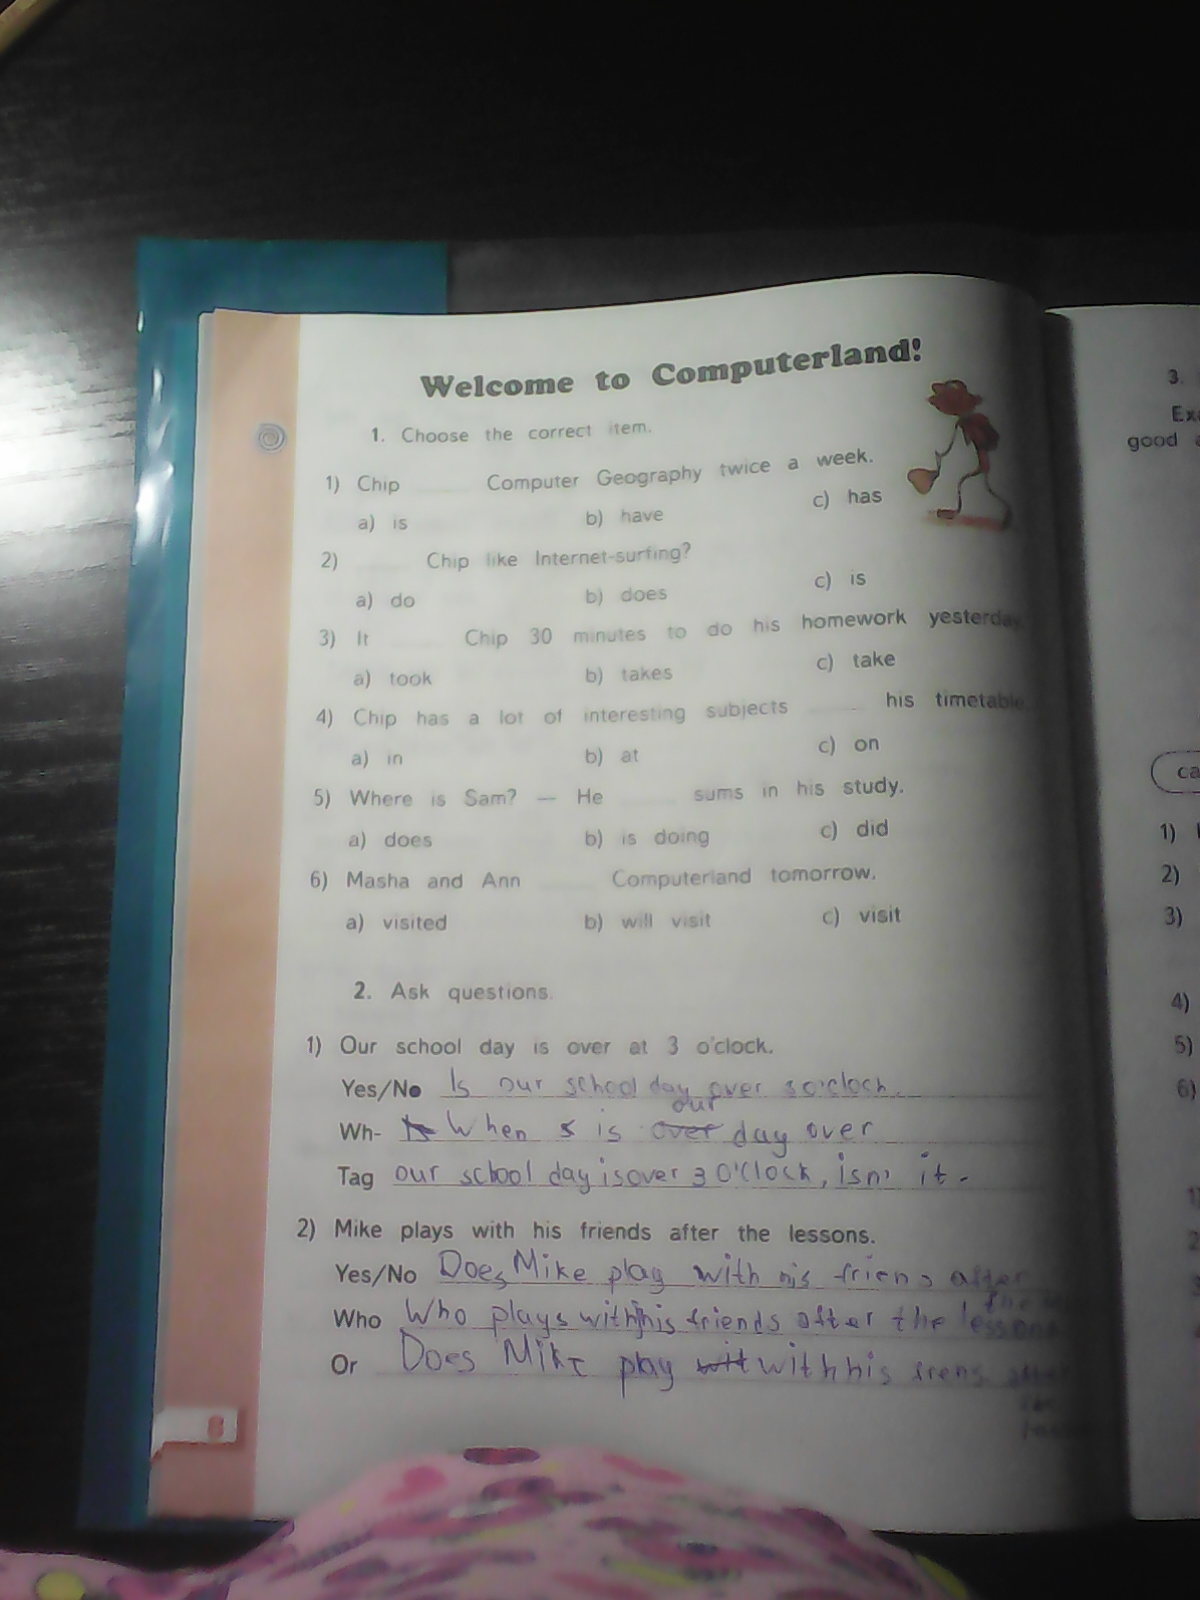 Welcome to Computerland!
1. Choose the correct item.
1) Chip ____ Computer Geography twice a week.
a) is b) have c) has
2) ____ Chip like Internet-surfing?
a) do b) does c) is
3) It ____ Chip 30 minutes to do his homework yesterday
a) took b) takes c) take
4) Chip has a lot of interesting subjects ____ his timetable
a) in b) at c) on
5) Where is Sam? — He ____ sums in his study.
a) does b) is doing c) did
6) Masha and Ann ____ Computerland tomorrow.
a) visited b) will visit c) visit
2. Ask questions.
1) Our school day is over at 3 o'clock.
Yes/No Is our school day over 3 o'cloch.
our
Wh- When is over day over
Tag our school day is over 3 O'Clock, isn' it.
2) Mike plays with his friends after the lessons.
Yes/No Does Mike play with his friens after
the
Who Who plays with his friends after the lessons
Or Does Mike play wit with his frens after
8
3.
Ex
good
ca
1)
2)
3)
4)
5)
6)